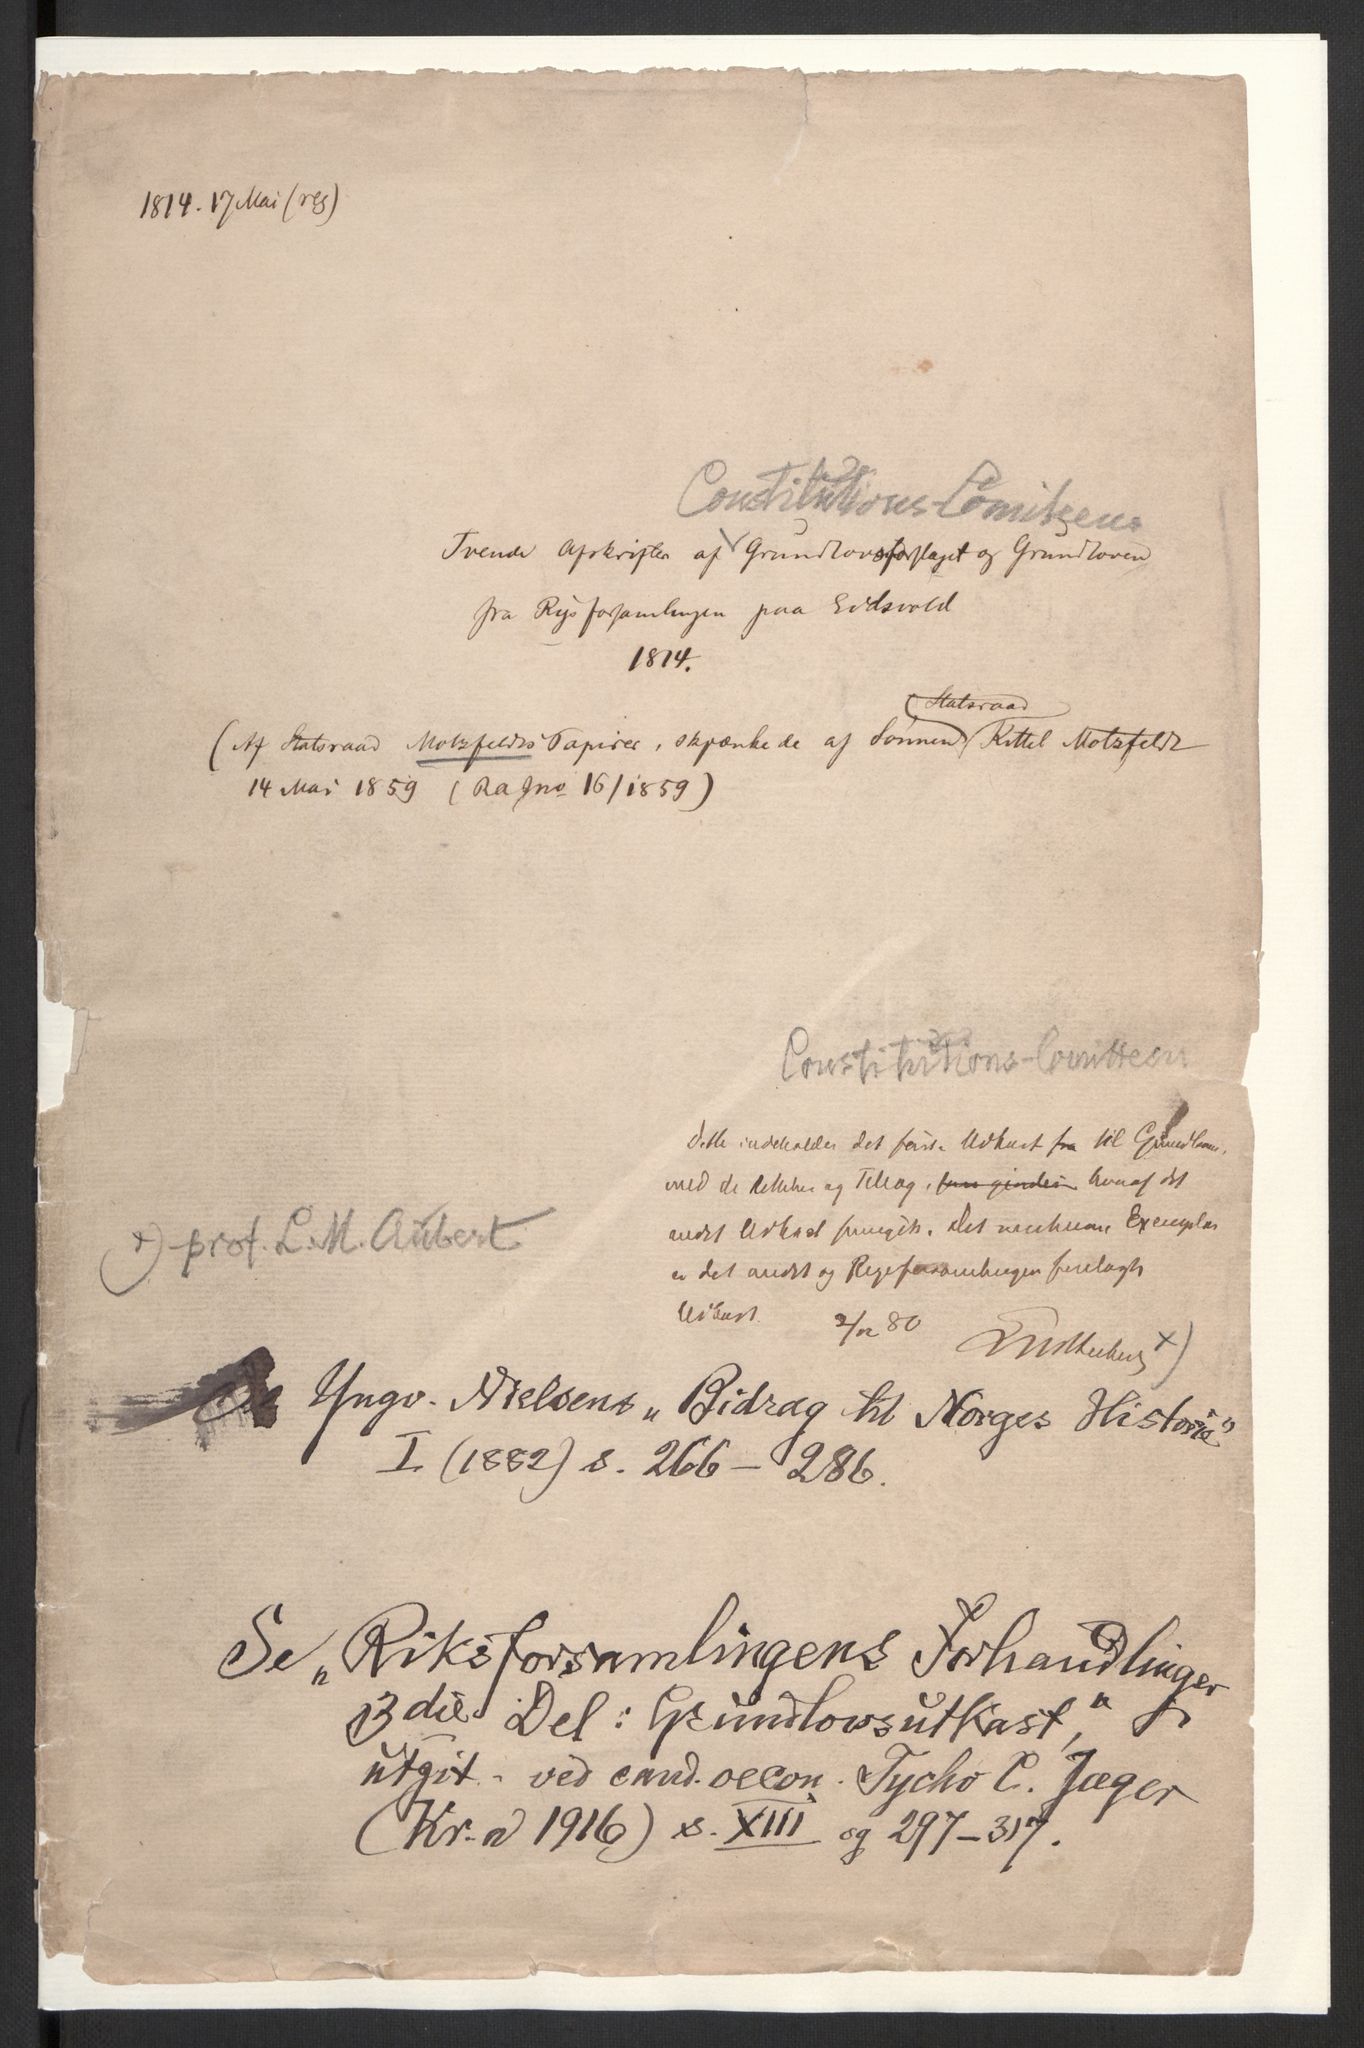 1814. 17 Mai (reg)
Constitutions-Comiteens
Tvende Afskrifter af Grundlovsforslaget og Grundloven
fra Rigsforsamlingen paa Eidsvold
1814.
Statsraad
(Af Statsraad Motzfeldts Papirer, skjænkede af Sønnen Kittel Motzfeldt
14 Mai 1859 (Ra Jno 16/1859)
Constitutions-Comitteen
Dette indeholder det første Udkast fra til Grundloven,
med de Rettelser og Tillæg, hvoraf det
andet Udkast fremgik. Det Exemplar
er det andet og Rigsforsamlingen forelagte
Udkast. 2/12 80
LMBAubert x)
x) prof. L. M. Aubert
Se Yngv. Nielsens „Bidrag til Norges Historie"
I (1882) s. 266 – 286.
Se „Riksforsamlingens Forhandlinger
3die Del: Grundlovsutkast,"
utgit. ved cand. oecon. Tycho C. Jæger
(Kr.a 1916) s. XIII og 297–317.